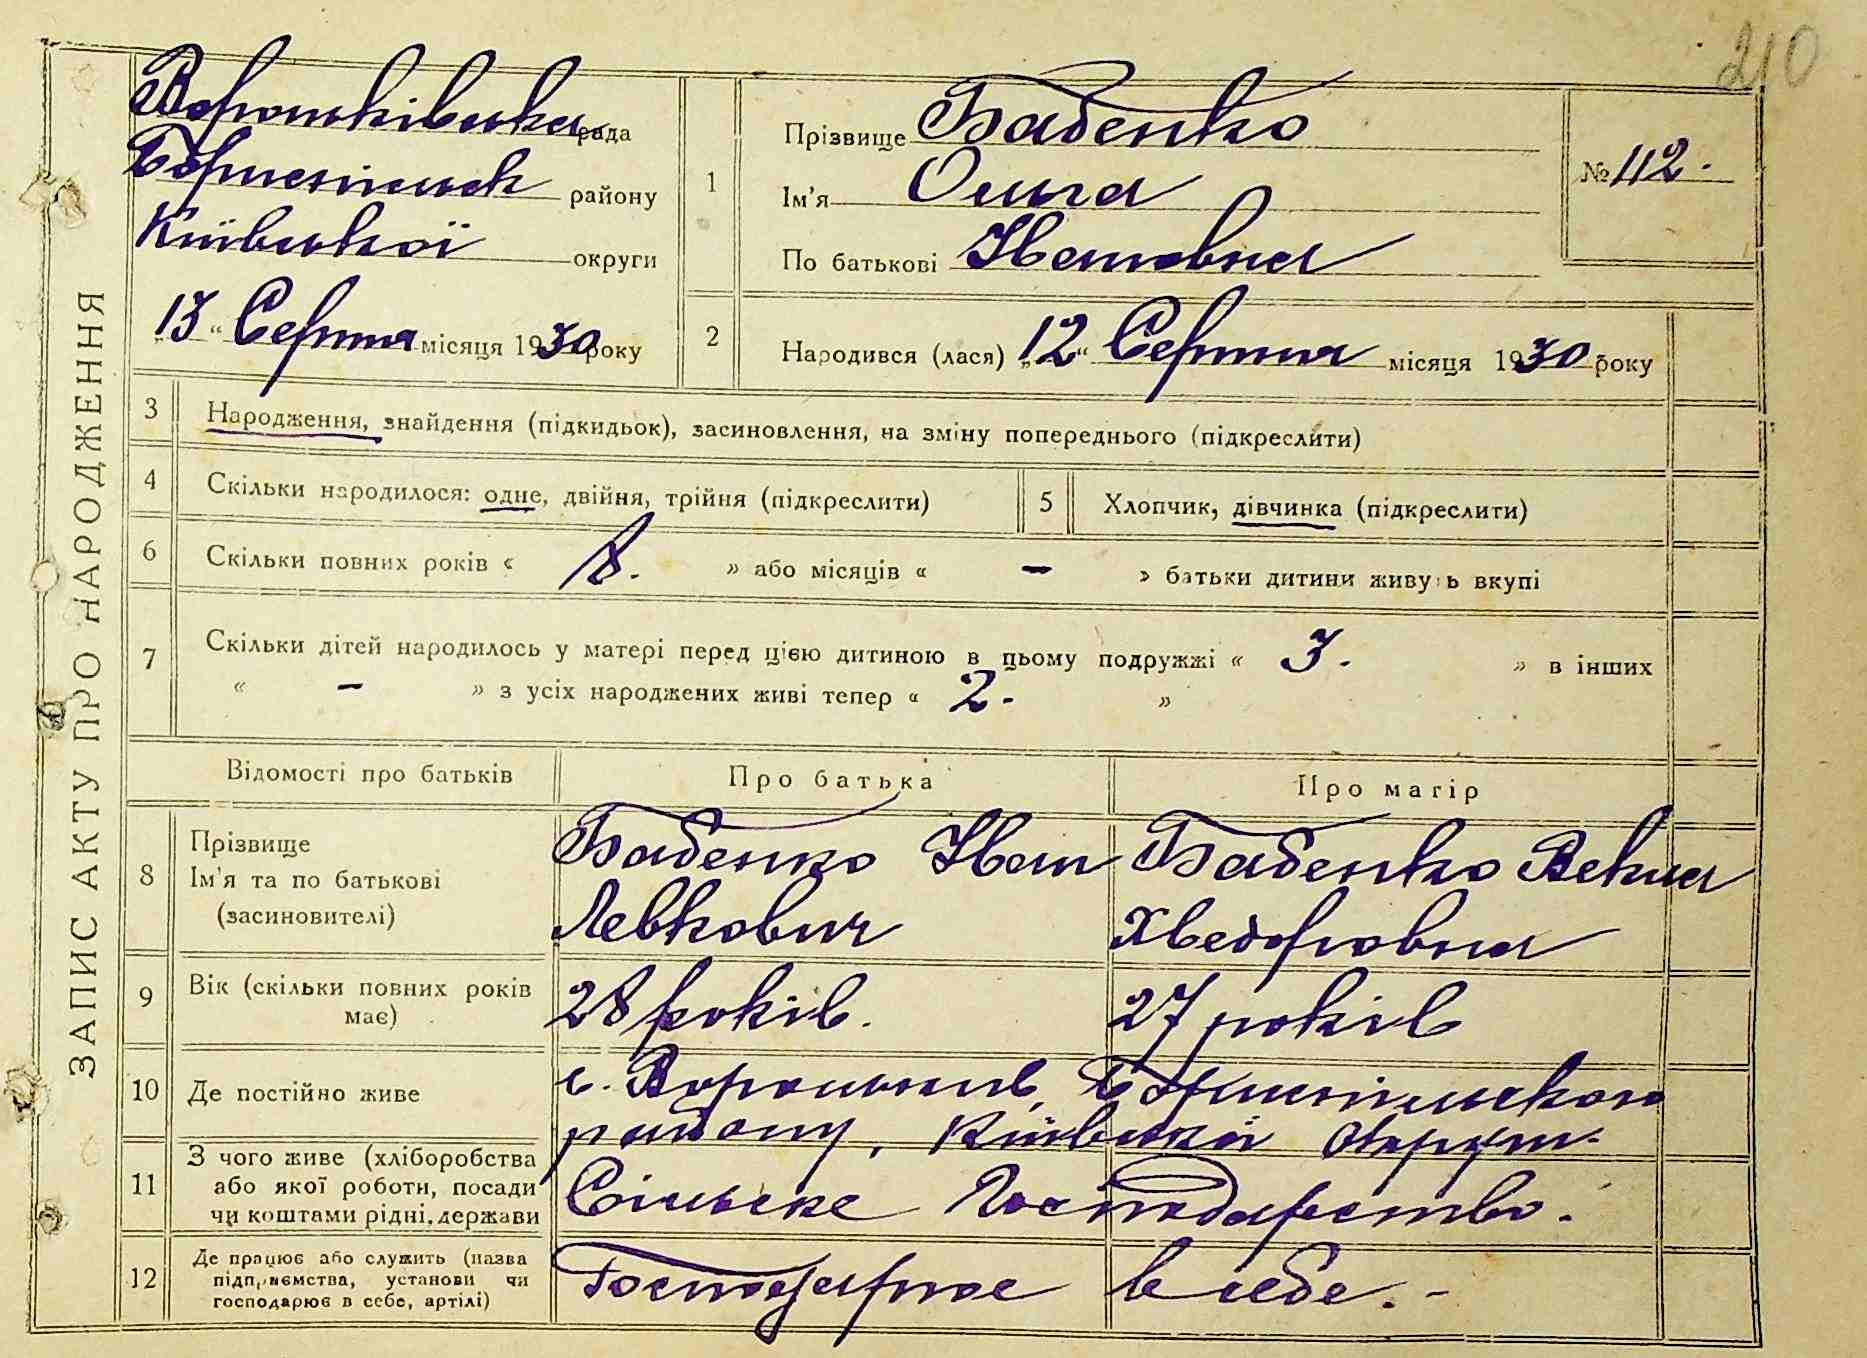 210
ЗАПИС АКТУ ПРО НАРОДЖЕННЯ
Вороньківська рада
Бориспільск району
Київської округи
„13“ Серпня місяця 1930 року
1
Прізвище Бабенко
Ім'я Ольга
По батькові Івановна
№ 112.
2
Народився (лася) „12“ Серпня місяця 1930 року
3 Народження, знайдення (підкидьок), засиновлення, на зміну попереднього (підкреслити)
4 Скільки народилося: одне, двійня, трійня (підкреслити)
5 Хлопчик, дівчинка (підкреслити)
6 Скільки повних років « 8. » або місяців « – » батьки дитини живуть вкупі
7 Скільки дітей народилось у матері перед цією дитиною в цьому подружжі « 3. » в інших
« – » з усіх народжених живі тепер « 2. »
Відомості про батьків Про батька Про матір
8 Прізвище
Ім'я та по батькові
(засиновителі)
Бабенко Іван
Левкович
Бабенко Векла
Хведоровна
9 Вік (скільки повних років
має)
28 років.
27 років
10 Де постійно живе
с. Вороньків, Бориспільського
району, Київської округи.
11 З чого живе (хліборобства
або якої роботи, посади
чи коштами рідні, держави
Сільске Господарство.
12 Де працює або служить (назва
підприємства, установи чи
господарює в себе, артілі)
Господарює в себе. -